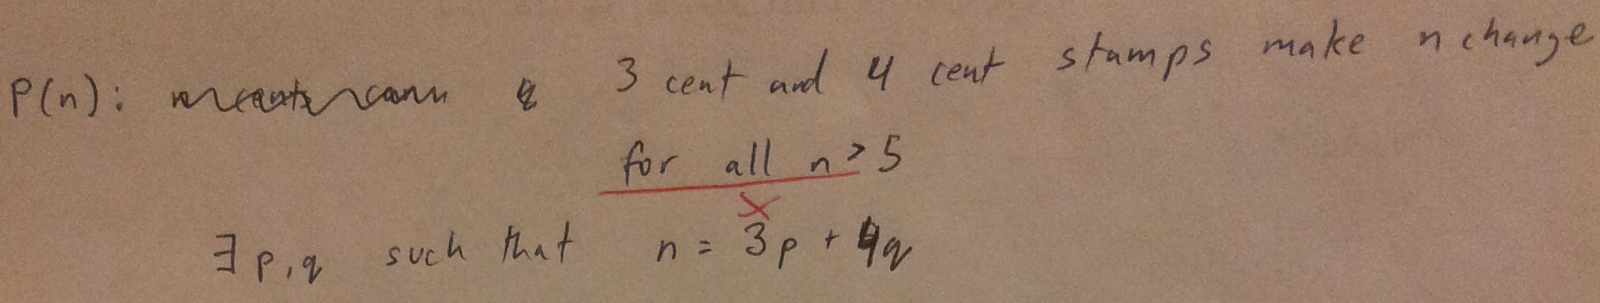 P(n): 3 cent and 4 cent stamps make n change
for all n > 5
∃ p, q such that n = 3p + 4q